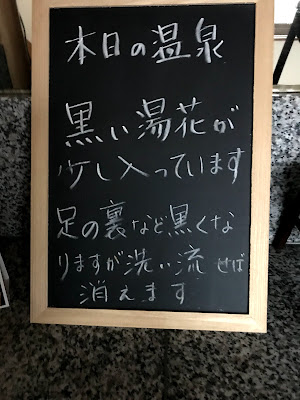 本日の温泉
黒い湯花が
少し入っています
足の裏など黒くな
りますが洗い流せば
消えます